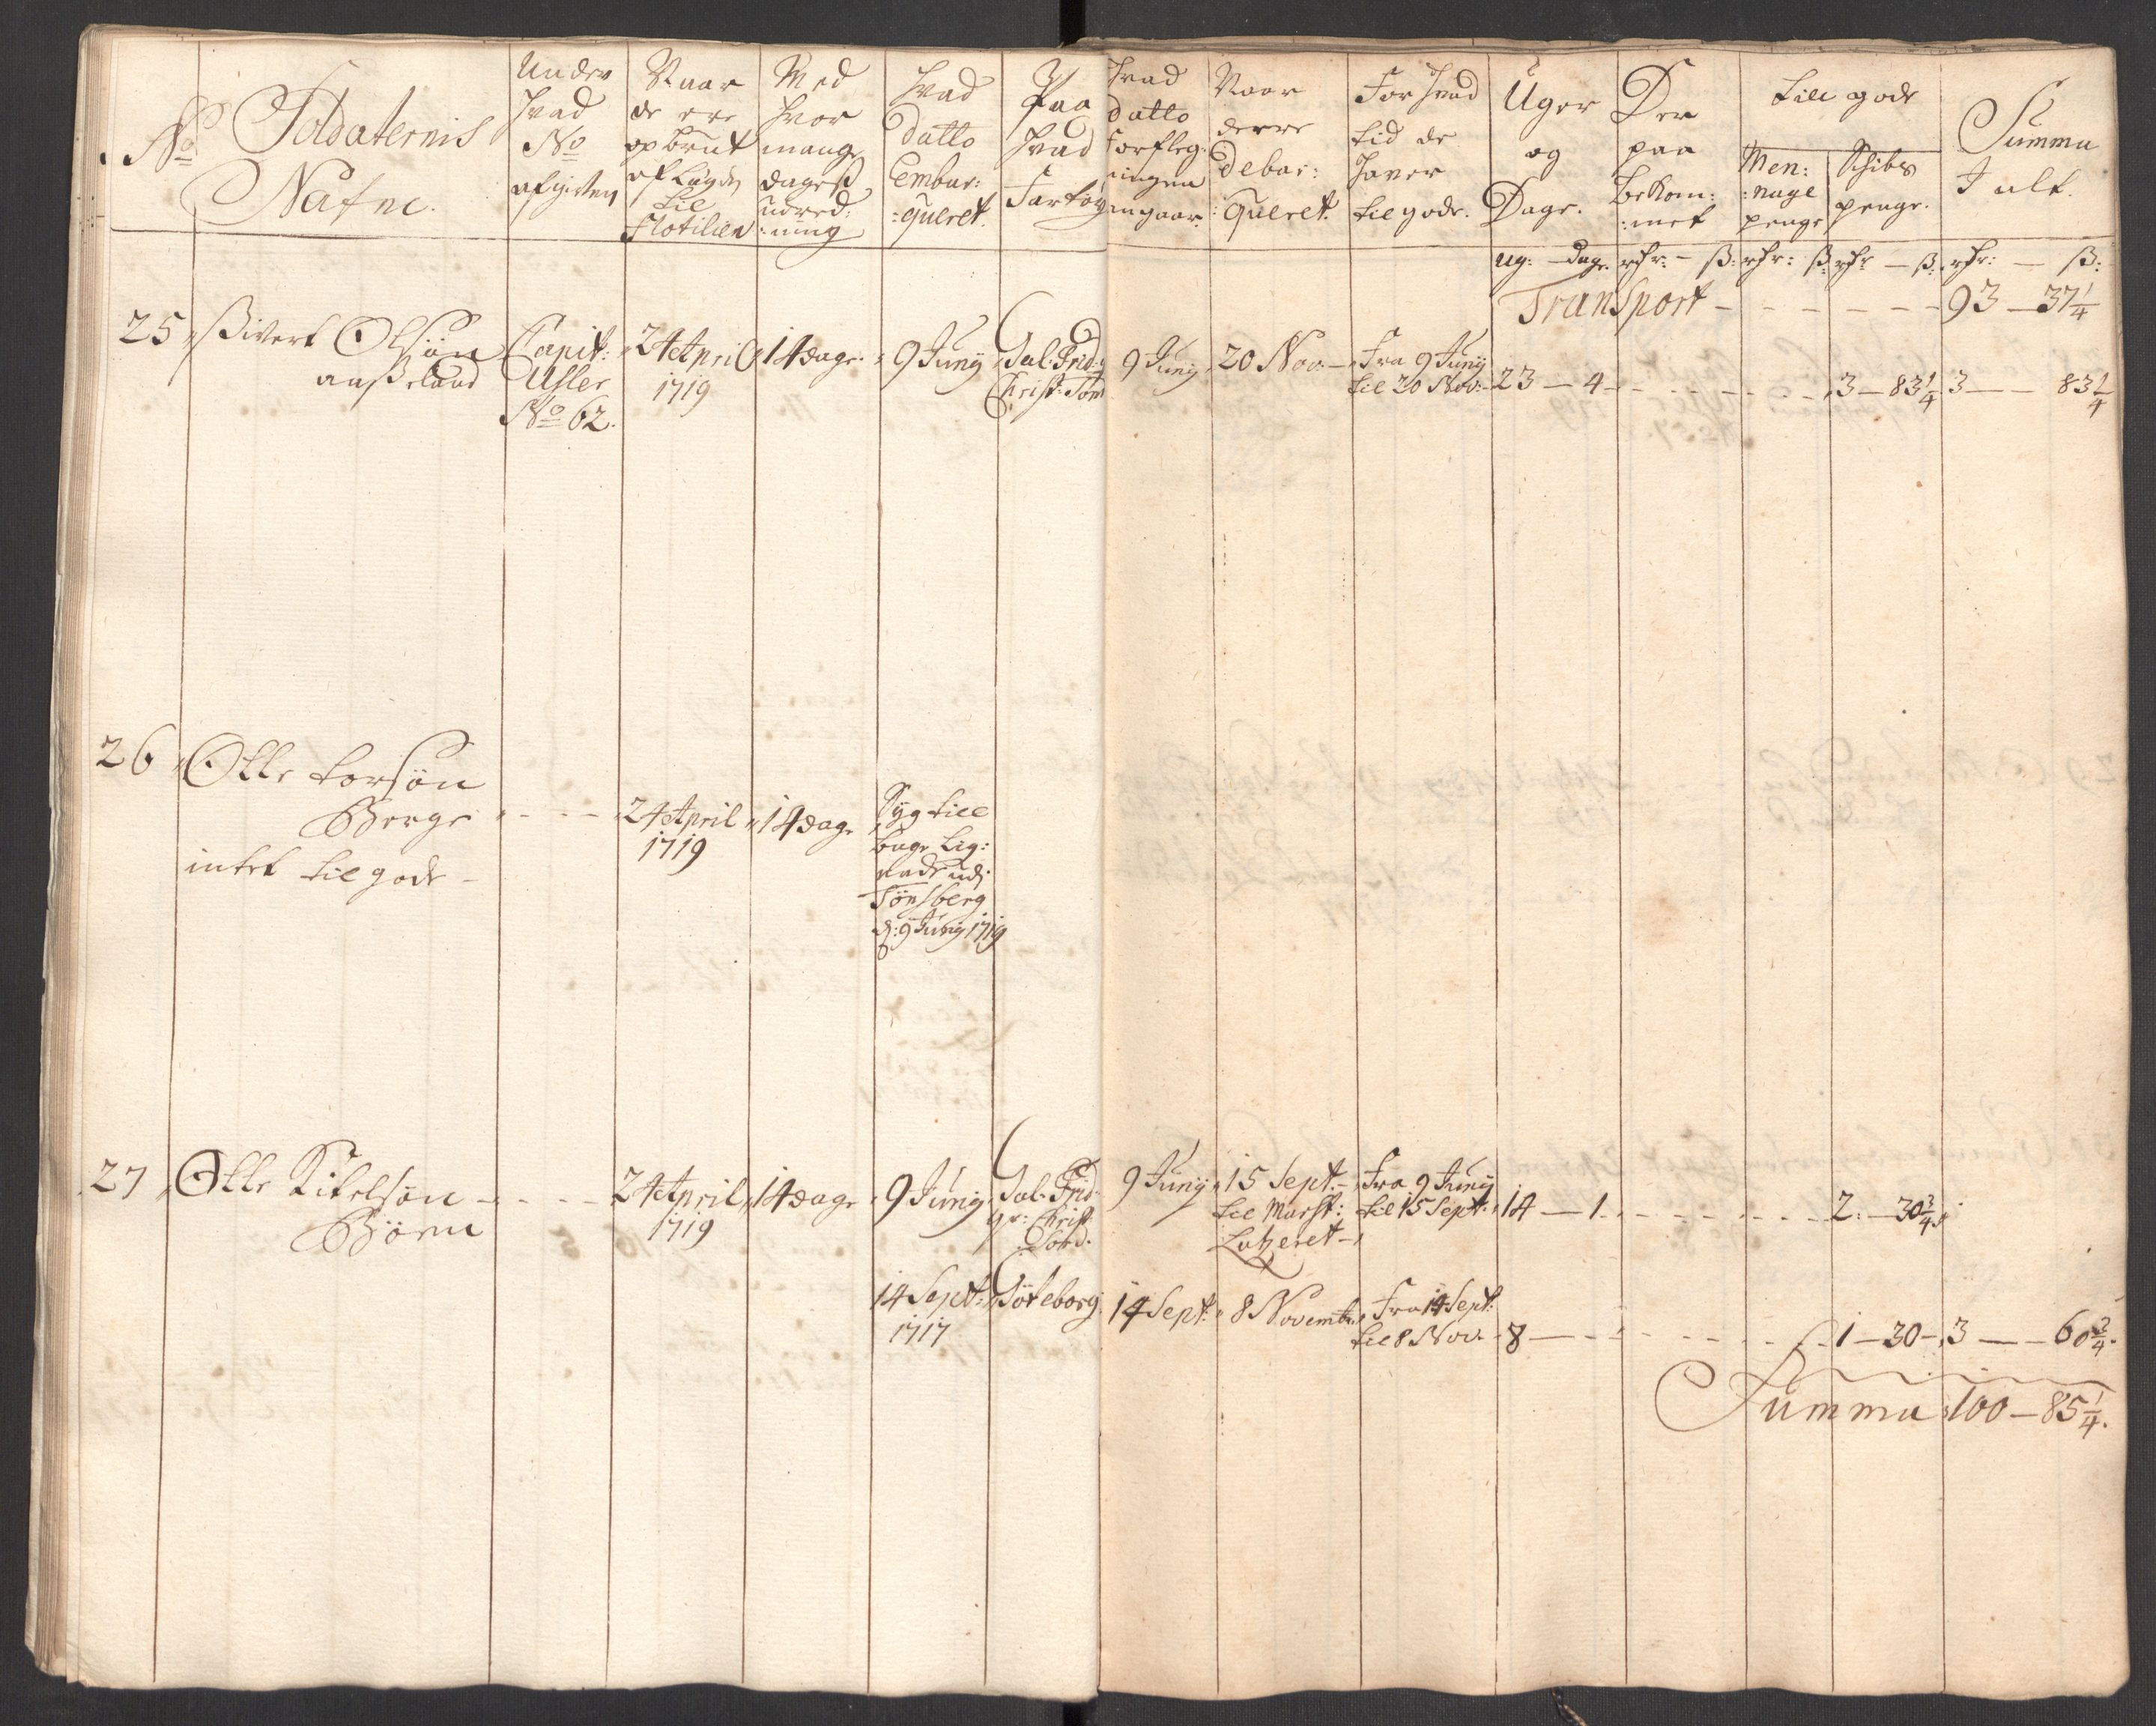 No
Soldaternis
Nafne.
Under
hvad
No
afgieten
Naar
de ere
opbrut
af Lægdn
til
Flotilien
Med
hvor
mange
dages
udred:
:ning
hvad
datto
Embar:
:queret.
Paa
hvad
Fartøy
hvad
datto
forfleg:
ningen
angaar.
Naar
derre
debar:
:queret.
For hvad
tid de
haver
til gode.
Uger
og
Dage.
Der
paa
bekom:
:met
till gode
Men:
:nage
penge
Schibs
penge.
Summa
I alt.
Ug: - dage rdr: - ß: rdr: ß: rdr - ß: rdr: - ß:
Transport - - - - - - 93 - 37 1/4
25 Sivert Olsøn
Capit:
Usler
No 62.
24 April
1719
14 dage
9 Juny
Gal: Frid:
Christ: Tom
9 Juny
20 Nov:
Fra 9 Juny
til 20 Nov:
23 - 4 - - - - - 3 - 83 1/4 3 - 83 1/4
26 Olle torsøn
Berge
intet til gode -
24 April
1719
14 dage
Syg till
bage Lig:
Tønsberg
d: 9 Juny 1719
27 Olle Kitelsøn
Børen
24 April
1719
14 dage
9 Juny
Gal: Frid
gr: Christ:
9 Juny
15 Sept: -
til Marst:
Latzeret -
Fra 9 Juny
til 15 Sept:
14 - 1 - - - - - 2: - 30 3/4
14 Sept:
1717
Gøteborg
14 Sept:
8 Novembr
Fra 14 Sept:
til 8 Nov.
8 - - - - - 1 - 30 - 3 - 60 3/4.
Summa 100 - 85 1/4.